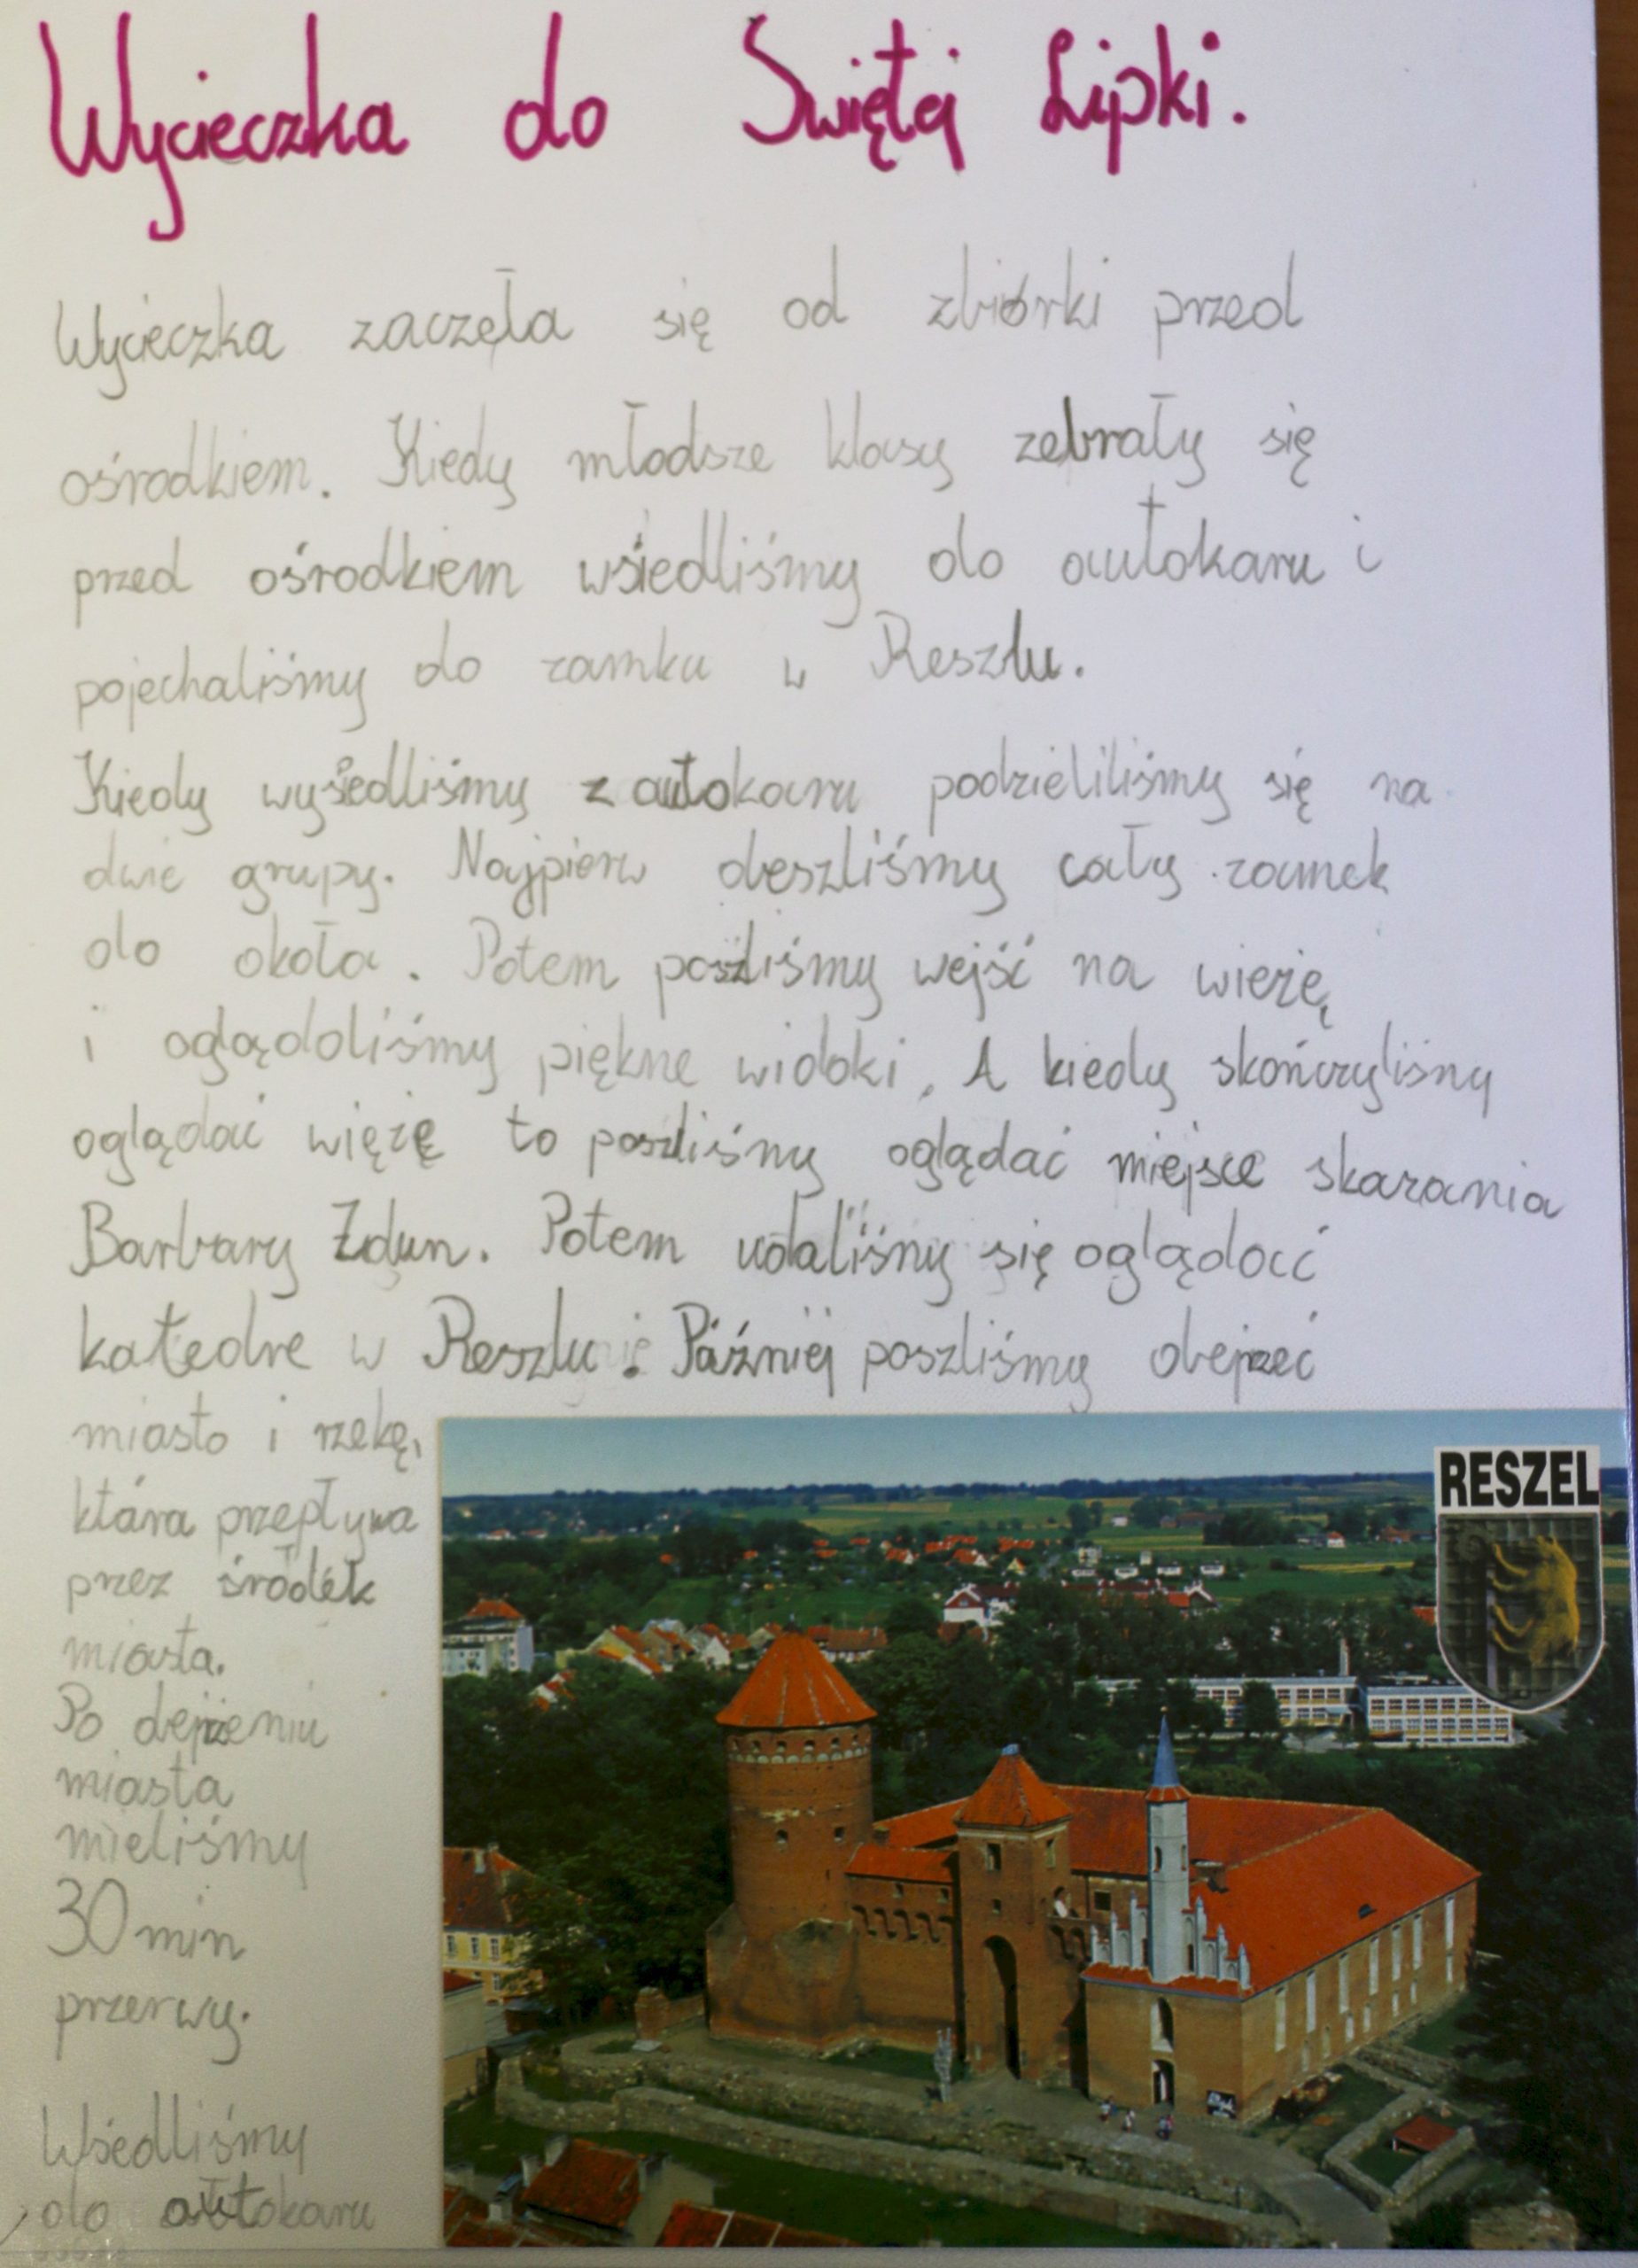 Wycieczka do Swiętej Lipki.
Wycieczka zaczęła się od zbiórki przed
ośrodkiem. Kiedy młodsze klasy zebrały się
przed ośrodkiem wsiedliśmy do autokaru i
pojechaliśmy do zamku w Reszlu.
Kiedy wysiedliśmy z autokaru podzieliliśmy się na
dwie grupy. Najpierw obeszliśmy cały zamek
do okoła. Potem poszliśmy wejść na wieżę
i oglądaliśmy piękne widoki. A kiedy skończyliśmy
oglądać więżę to poszliśmy oglądać miejsce skazania
Barbary Zdun. Potem udaliśmy się oglądać
katedre w Reszlu. Później poszliśmy obejrzeć
miasto i rzekę,
która przepływa
przez środek
miasta.
Po obejrzeniu
miasta
mieliśmy
30 min
przerwy.
Wsiedliśmy
do autokaru
RESZEL